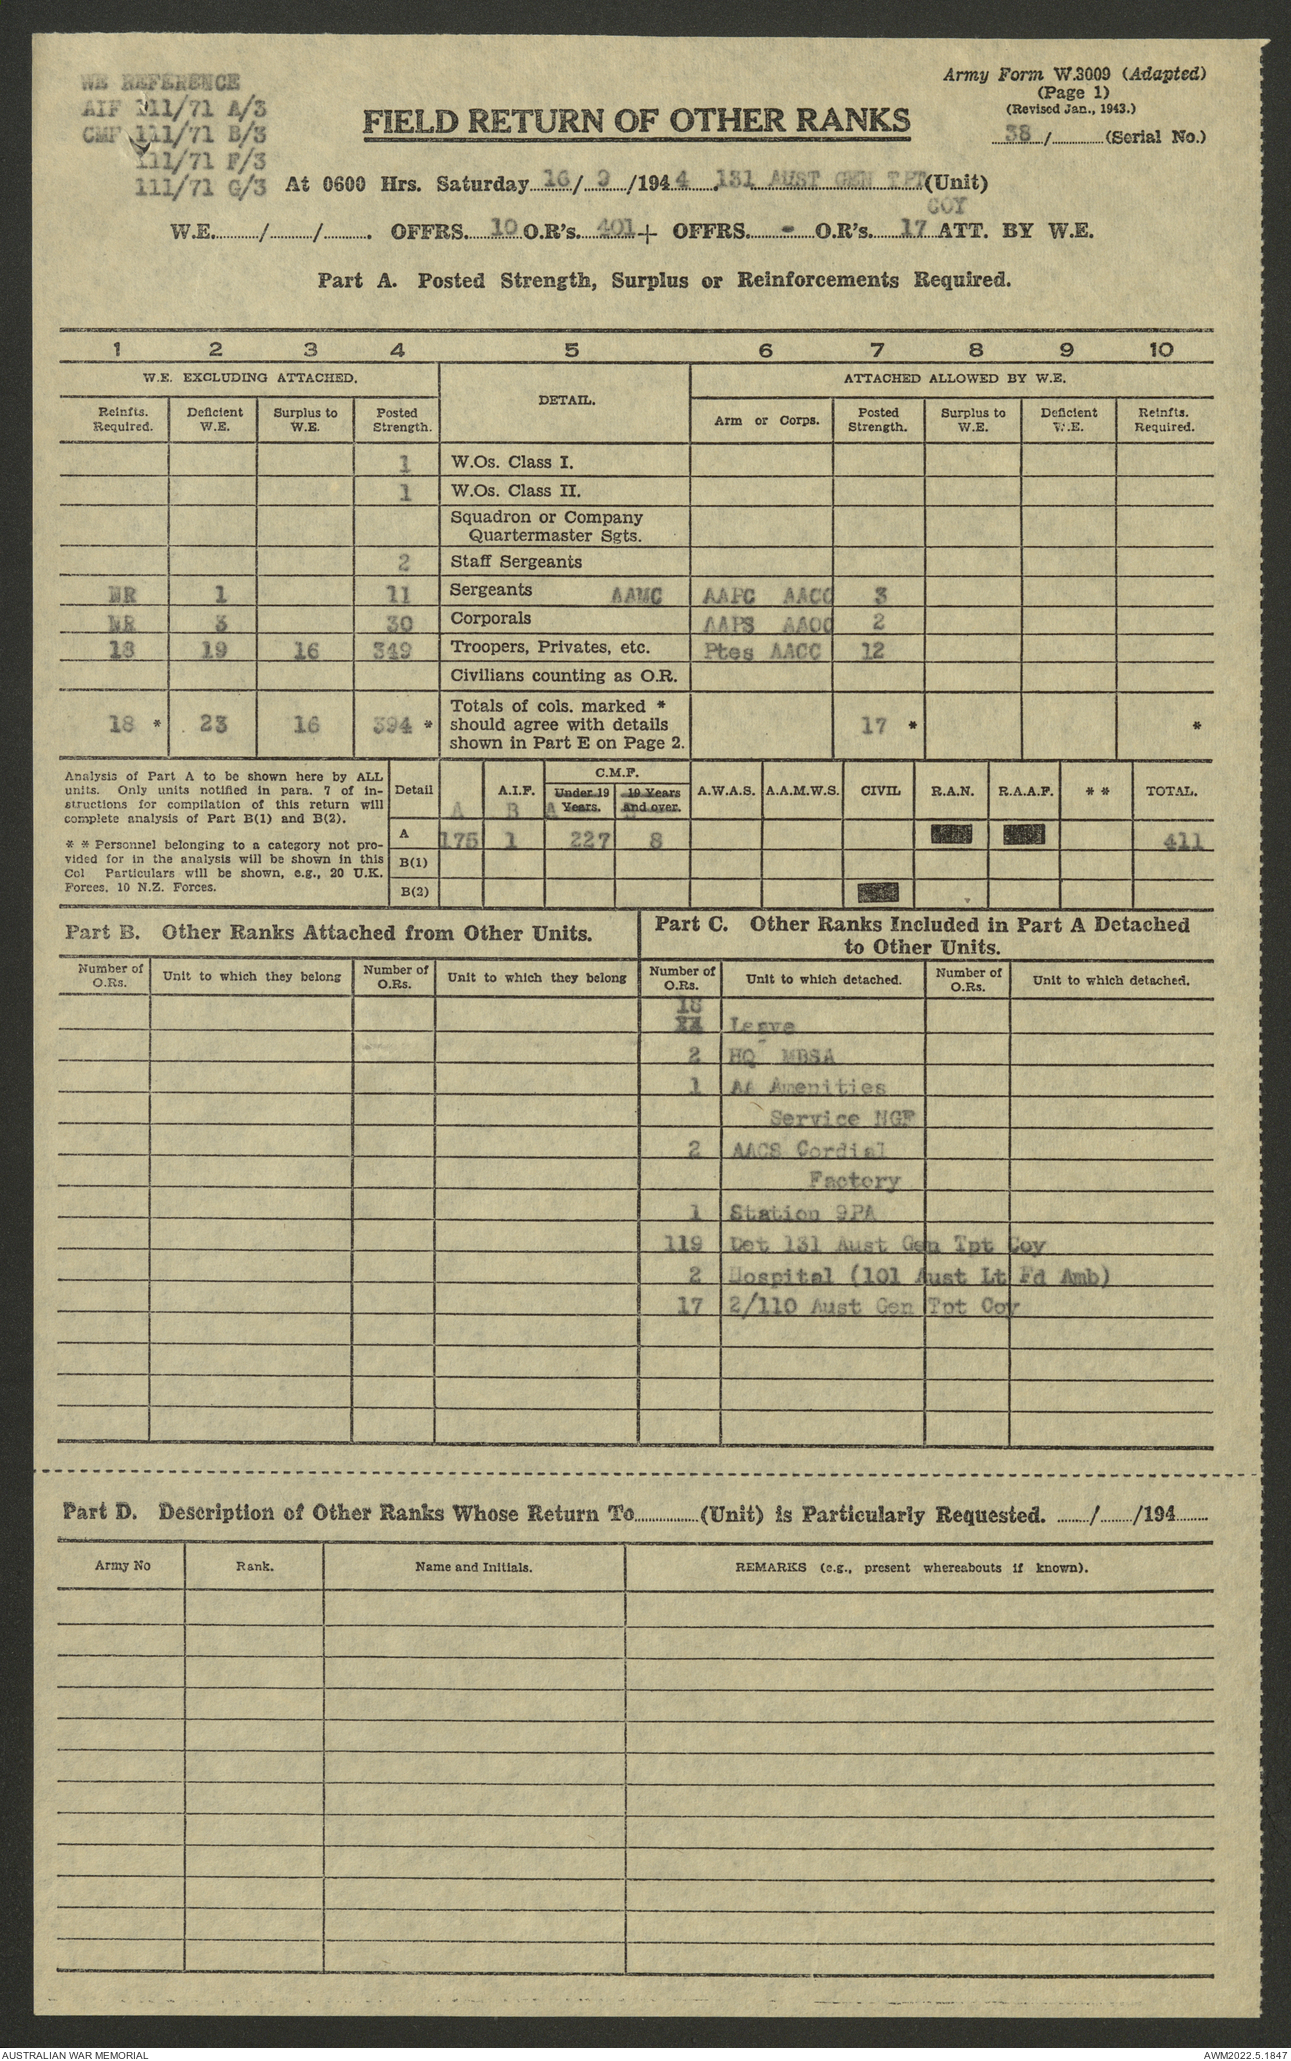 WE REFERENCE
AIF 111/71 A/3
CMF 111/71 B/3
111/71 F/3
111/71 G/3
Army Form W.3009 (Adapted)
(Page 1)
(Revised Jan., 1943.)
38 / (Serial No.)
FIELD RETURN OF OTHER RANKS
At 0600 Hrs. Saturday 16 / 9 /1944 131 AUST GEN TPT (Unit)
COY
W.E. / / . OFFRS. 10 O.R's. 401 + OFFRS. - O.R's. 17 ATT. BY W.E.
Part A. Posted Strength, Surplus or Reinforcements Required.
1 2 3 4 5 6 7 8 9 10
W.E. EXCLUDING ATTACHED. DETAIL. ATTACHED ALLOWED BY W.E.
Reinfts. Required. Deficient W.E. Surplus to W.E. Posted Strength. Arm or Corps. Posted Strength. Surplus to W.E. Deficient W.E. Reinfts. Required.
1 W.Os. Class I.
1 W.Os. Class II.
Squadron or Company
Quartermaster Sgts.
2 Staff Sergeants
NR 1 11 Sergeants AAMC AAPC AACC 3
NR 3 30 Corporals AAPS AAOC 2
18 19 16 349 Troopers, Privates, etc. Ptes AACC 12
Civilians counting as O.R.
18 * 23 16 394 * Totals of cols. marked * should agree with details shown in Part E on Page 2. 17 * *
Analysis of Part A to be shown here by ALL
units. Only units notified in para. 7 of in-
structions for compilation of this return will
complete analysis of Part B(1) and B(2).
* * Personnel belonging to a category not pro-
vided for in the analysis will be shown in this
Col Particulars will be shown, e.g., 20 U.K.
Forces, 10 N.Z. Forces.
Detail A.I.F. C.M.F. A.W.A.S. A.A.M.W.S. CIVIL R.A.N. R.A.A.F. * * TOTAL.
Under 19 Years. 19 Years and over.
A B A
A 175 1 227 8 411
B(1)
B(2)
Part B. Other Ranks Attached from Other Units.
Part C. Other Ranks Included in Part A Detached
to Other Units.
Number of O.Rs. Unit to which they belong Number of O.Rs. Unit to which they belong Number of O.Rs. Unit to which detached. Number of O.Rs. Unit to which detached.
18
Leave
2 HQ MBSA
1 AA Amenities
Service NGF
2 AACS Cordial
Factory
1 Station 9PA
119 Det 131 Aust Gen Tpt Coy
2 Hospital (101 Aust Lt Fd Amb)
17 2/110 Aust Gen Tpt Coy
Part D. Description of Other Ranks Whose Return To (Unit) is Particularly Requested. / /194
Army No Rank. Name and Initials. REMARKS (e.g., present whereabouts if known).
AUSTRALIAN WAR MEMORIAL
AWM2022.5.1847